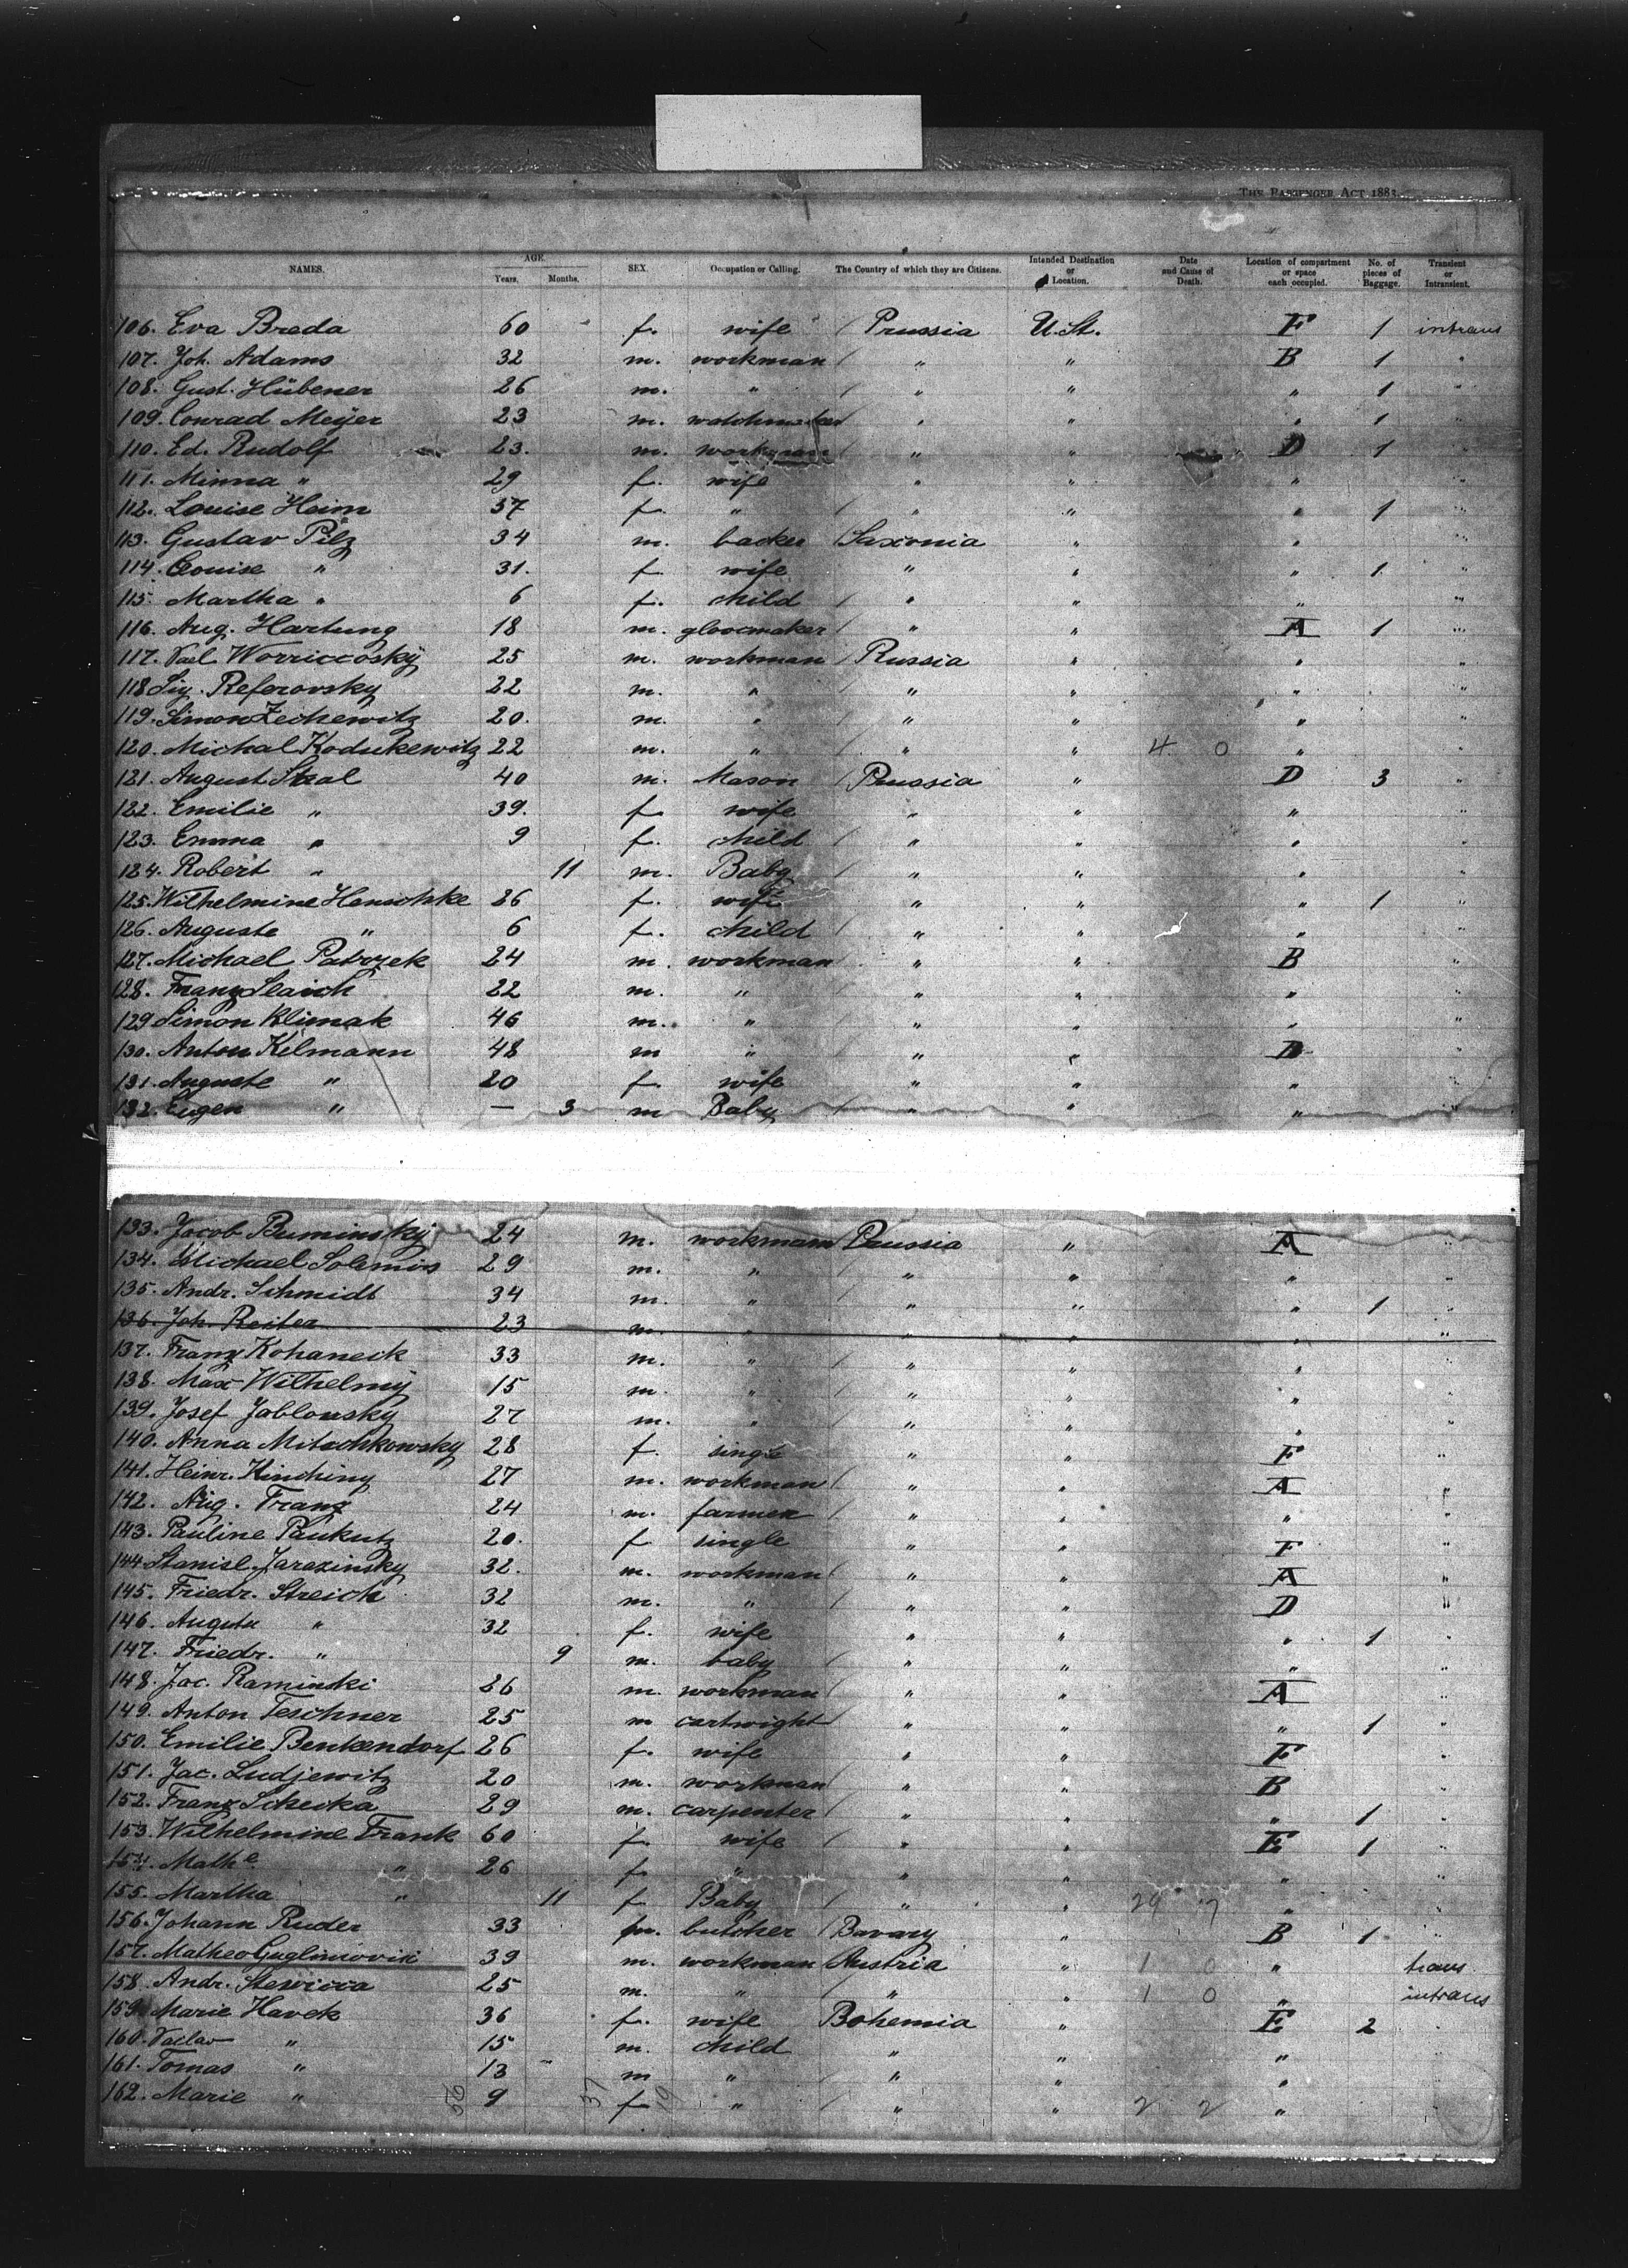 THE PASSENGER ACT 1882.
NAMES. AGE. Years. Months. SEX. Occupation or Calling. The Country of which they are Citizens. Intended Destination or Location. Date and Cause of Death. Location of compartment or space each occupied. No. of pieces of Baggage. Transient or Intransient.
106. Eva Breda 60 f. wife Prussia U. St. F 1 intrans
107. Joh. Adams 32 m. workman " " B 1 "
108. Gust. Hübener 26 m. " " " " 1 "
109. Conrad Meÿer 23 m. watchmaker " " " 1 "
110. Ed. Rudolf 23. m. workman " " D 1 "
111. Minna " 29 f. wife " " " "
112. Louise Heim 37 f. " " " " 1 "
113. Gustav Pilz 34 m. backer Saxonia " " "
114. Louise " 31. f wife " " " 1 "
115. Martha " 6 f. child " " " "
116. Aug. Hartung 18 m. " " A 1 "
117. Worriccoskÿ 25 m. workman Russia " " "
118 Sig. Referovsky 22 m. " " " " "
119. Simon Zechewitz 20. m. " " " " "
120. Michal Kodukewitz 22 m. " " " 4 0 " "
121. August Skal 40 m. Mason Prussia " D 3 "
122. Emilie " 39. f. wife " " " "
123. Emma " 9 f. child " " " "
124. Robert " 11 m. Baby " " " "
125. Wilhelmine Henschke 26 f. wife " " " 1 "
126. Auguste " 6 f. child " " " "
127. Michael Patrzek 24 m. workman " " B "
128. Franz 22 m. " " " " "
129 Simon Klimak 46 m. " " " " "
130. Anton Kilmann 48 m " " " D "
131. Auguste " 20 f. wife " " " "
132. Eugen " — 3 m Baby " " " "
133. Jacob Buminskÿ 24 m. workman Prussia " A "
134. Michael 29 m. " " " " "
135. Andr. Schmidt 34 m. " " " " 1 "
136. Joh. Reiter 23 m. " " " " "
137. Franz Kohaneck 33 m. " " " " "
138. Max Wilhelmÿ 15 m. " " " " "
139. Josef Jablonsky 27 m. " " " " "
140. Anna Mitschkowsky 28 f. single " " F "
141. Heinr. Kinching 27 m. workman " " A "
142. Aug. Franz 24 m. farmer " " " "
143. Pauline Paukutz 20. f single " " F "
144 Stanisl. Jarazinsky 32. m. workman " " A "
145. Friedr. Streich 32 m. " " " D "
146. Augusta " 32 f. wife " " " 1 "
147. Friedr. " 9 m. baby " " " "
148. Jac. Raminski 26 m. workman " " A "
149. Anton Teschner 25 m cartwright " " " 1 "
150. Emilie Benkendorf 26 f. wife " " F "
151. Jac. Ludjewitz 20 m. workman " " B "
152. Franz Scheika 29 m. carpenter " " " 1 "
153. Wilhelmine Frank 60 f. wife " " E 1 "
154. Mathe " 26 f. " " " " "
155. Martha " 11 f Baby " " 29 7 " "
156. Johann Ruder 33 m. butcher Bavary " B 1 "
157. Matheo Guglimovic 39 m. workman Austria " 1 0 " trans
158 Andr. Stewicca 25 m. " " " 1 0 " intrans
159 Marie Havek 36 f. wife Bohemia " E 2 "
160. Vaclav " 15 m. child " " " "
161. Tomas " 13 m " " " "
162. Marie " 9 f " " " 2 2 "